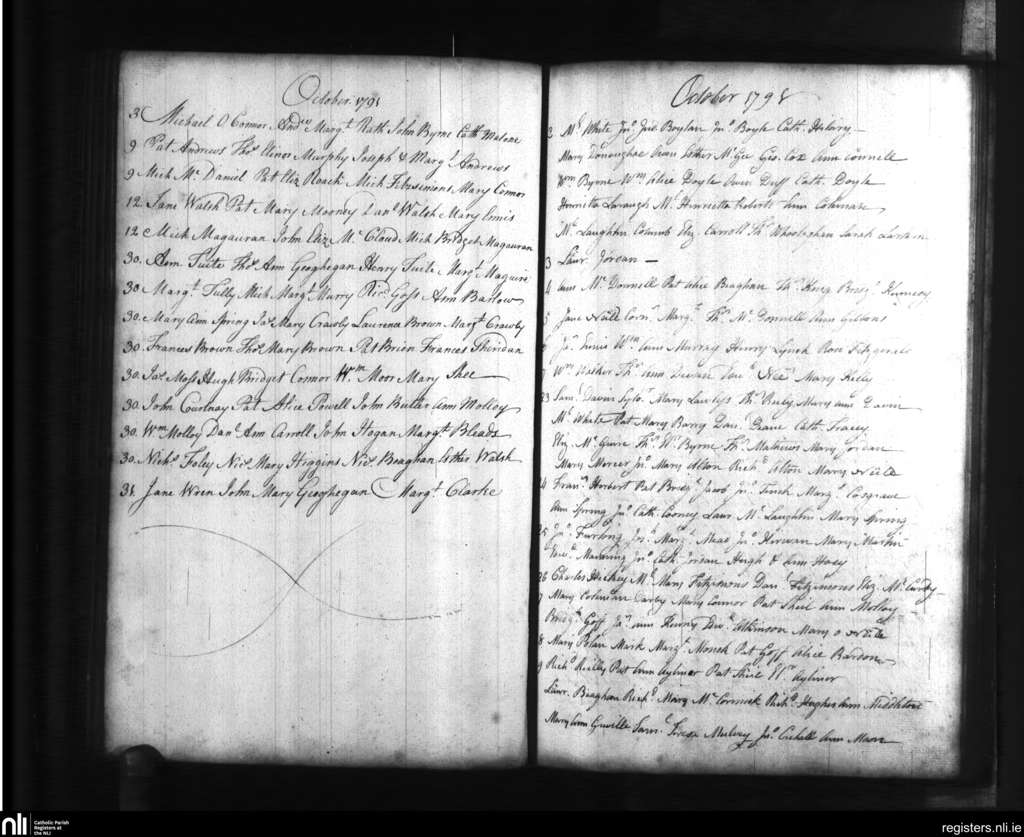 October 1791
3 Michael O Connor And.w Marg.t Rath John Byrne Cath Malone
9 Pat Andrews Tho.s Elinor Murphy Joseph & Marg.t Andrews
9 Mich Mc Daniel Pat Eliz Roach Mich Fitzsimons Mary Connor
12 Jane Walsh Pat Mary Mooney Dan.l Walsh Mary Ennis
12 Mich Magauran John Eliz Mc Cloud Mich Bridget Magauran
30. Ann Tuite Tho.s Ann Geoghegan Henry Tuite Marg.t Maguire
30 Marg.t Tully Mich Marg.t Murry Ric.d Goss Ann Barlow
30. Mary Ann Spring Ja.s Mary Crawly Laurence Brown Marg.t Crawly
30. Frances Brown Tho.s Mary Brown Pat Brien Frances Sheridan
30. Ja.s Moss Hugh Bridget Connor Wm Moss Mary Shee
30. John Courtnay Pat Alice Powell John Butler Ann Molloy
30. Wm Molloy Dan.l Ann Carroll John Hogan Marg.t Bleads
30. Nich.s Foley Nic.s Mary Higgins Nic.s Beaghan Esther Walsh
31. Jane Wren John Mary Geoghegan Marg.t Clarke
October 1798
2 M.l White Jn.o Jul Boylan Jn.o Boyle Cath.
Mary Donoughoe Owen Esther Mc Gee Geo. Cox Ann Connell
Wm Byrne Wm Alice Doyle Owen Duff Cath. Doyle
Henrietta M. Henrietta Roberts Ann Coleman
Mc Laughlin Eliz. Carroll Th.s Sarah Larkin
3 Laur Jordan
4 Ann Mc Donnell Pat Alice Beaghan Th.s King Bridg.t Kennedy
5 Jane Neill Corn.s Marg.t Th.s Mc Donnell Ann Gibbons
6 Ja.s Ennis Wm Ann Murray Henry Lynch Rose Fitzgerald
7 Wm Th.s Ann Edw.d Mary Kelly
Sam.l Davin Mary Lawless Th.s Mary Ann Davin
M.l White Pat Mary Barry Dan. Deane Cath. Tracey
Eliz. Mc Guire Th.s W. Byrne Th.s Mathews Mary Jordan
Mary Mercer Jn.o Mary Alton Rich.d Alton Mary Neile
Fran.s Herbert Pat Bridg.t Jacob Jn.o Marg.t Cosgrave
Ann Spring Jn.o Cath. Cooney Laur Mc Laughlin Mary Spring
25 Jn.o Furlong Marg.t Jn.o Kirwan Mary Martin
Edw.d Manning Jn.o Cath. Hugh & Ann Hoey
26 Charles Hickey M.l Mary Fitzsimons Dan Fitzsimons Eliz. Mc Curdy
7 Mary Coleman Darby Mary Connor Pat Sheil Ann Molloy
Bridg.t Goff Ja.s Ann Kenny Edw.d Atkinson Mary o Neile
8 Mary Mark Marg.t Monck Pat Goff Alice Bardon
9 Rich.d Reilly Pat Ann Aylmer Pat Sheil El.r Aylmer
Laur. Beaghan Rich.d Mary Mc Cormick Rich.d Hughes Ann Middleton
Mary Ann Sam.l Teresa Mulvey Jn.o Ann Mason
nli
Catholic Parish
Registers at
the NLI
registers.nli.ie